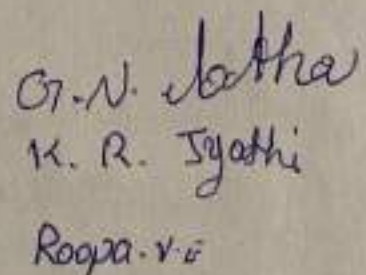 G.N. Latha
K. R. Jyothi
Roopa. V.